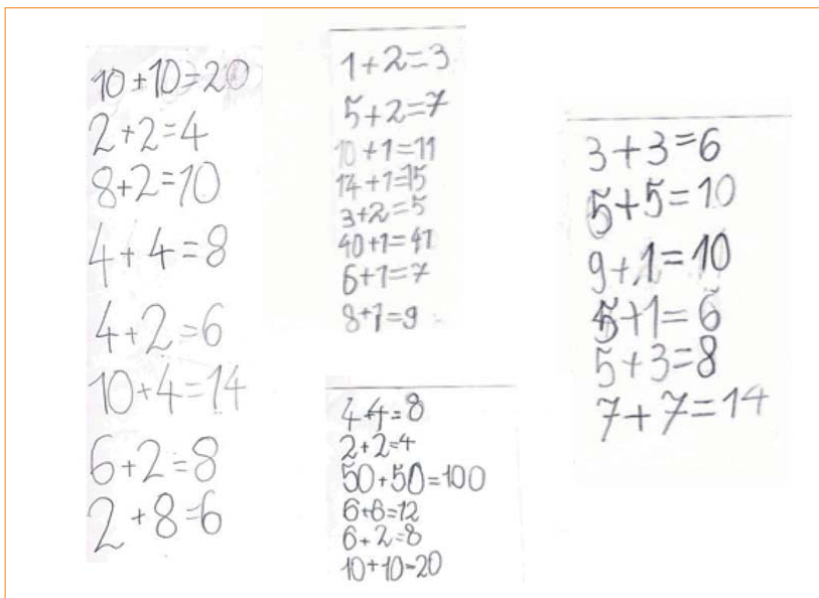 10+10=20
2+2=4
8+2=10
4+4=8
4+2=6
10+4=14
6+2=8
2+8=6
1+2=3
5+2=7
10+1=11
14+1=15
3+2=5
40+1=41
6+1=7
8+1=9
4+4=8
2+2=4
50+50=100
6+6=12
6+2=8
10+10=20
3+3=6
5+5=10
9+1=10
5+1=6
5+3=8
7+7=14